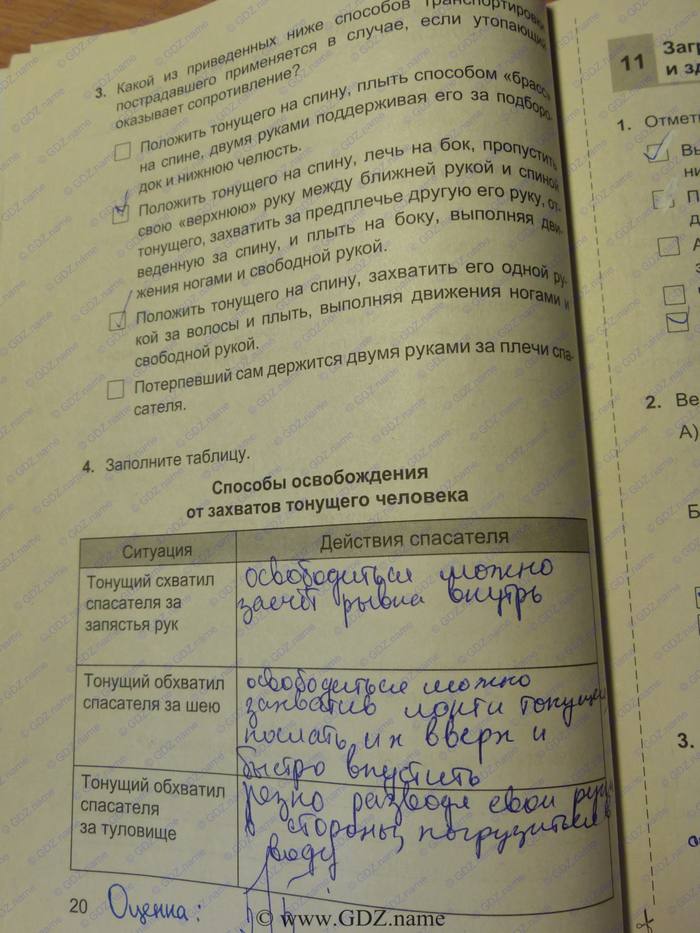 3. Какой из приведенных ниже способов транспортировки
пострадавшего применяется в случае, если утопающий
оказывает сопротивление?
Положить тонущего на спину, плыть способом «брасс»
на спине, двумя руками поддерживая его за подборо-
док и нижнюю челюсть.
Положить тонущего на спину, лечь на бок, пропустить
свою «верхнюю» руку между ближней рукой и спиной
тонущего, захватить за предплечье другую его руку, от-
веденную за спину, и плыть на боку, выполняя дви-
жения ногами и свободной рукой.
Положить тонущего на спину, захватить его одной ру-
кой за волосы и плыть, выполняя движения ногами и
свободной рукой.
Потерпевший сам держится двумя руками за плечи спа-
сателя.
4. Заполните таблицу.
Способы освобождения
от захватов тонущего человека
Ситуация
Действия спасателя
Тонущий схватил
спасателя за
запястья рук
освободиться можно
засчёт рывка внутрь
Тонущий обхватил
спасателя за шею
освободиться можно
захватив локти тонущего
послать их вверх и
быстро
Тонущий обхватил
спасателя
за туловище
резко разводя свои руки
в стороны, погрузиться в
воду
20 Оценка:
© www.GDZ.name
11 Загр
и зд
1. Отмет
Вы
ни
П
д
А
з
2. Ве
А)
Б
3.